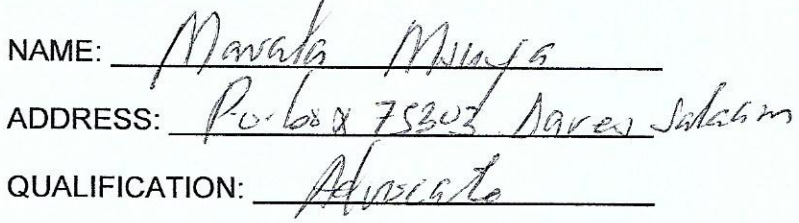 NAME: Marata
ADDRESS: P.o. box 75303 Dar es Salaam
QUALIFICATION: Advocate